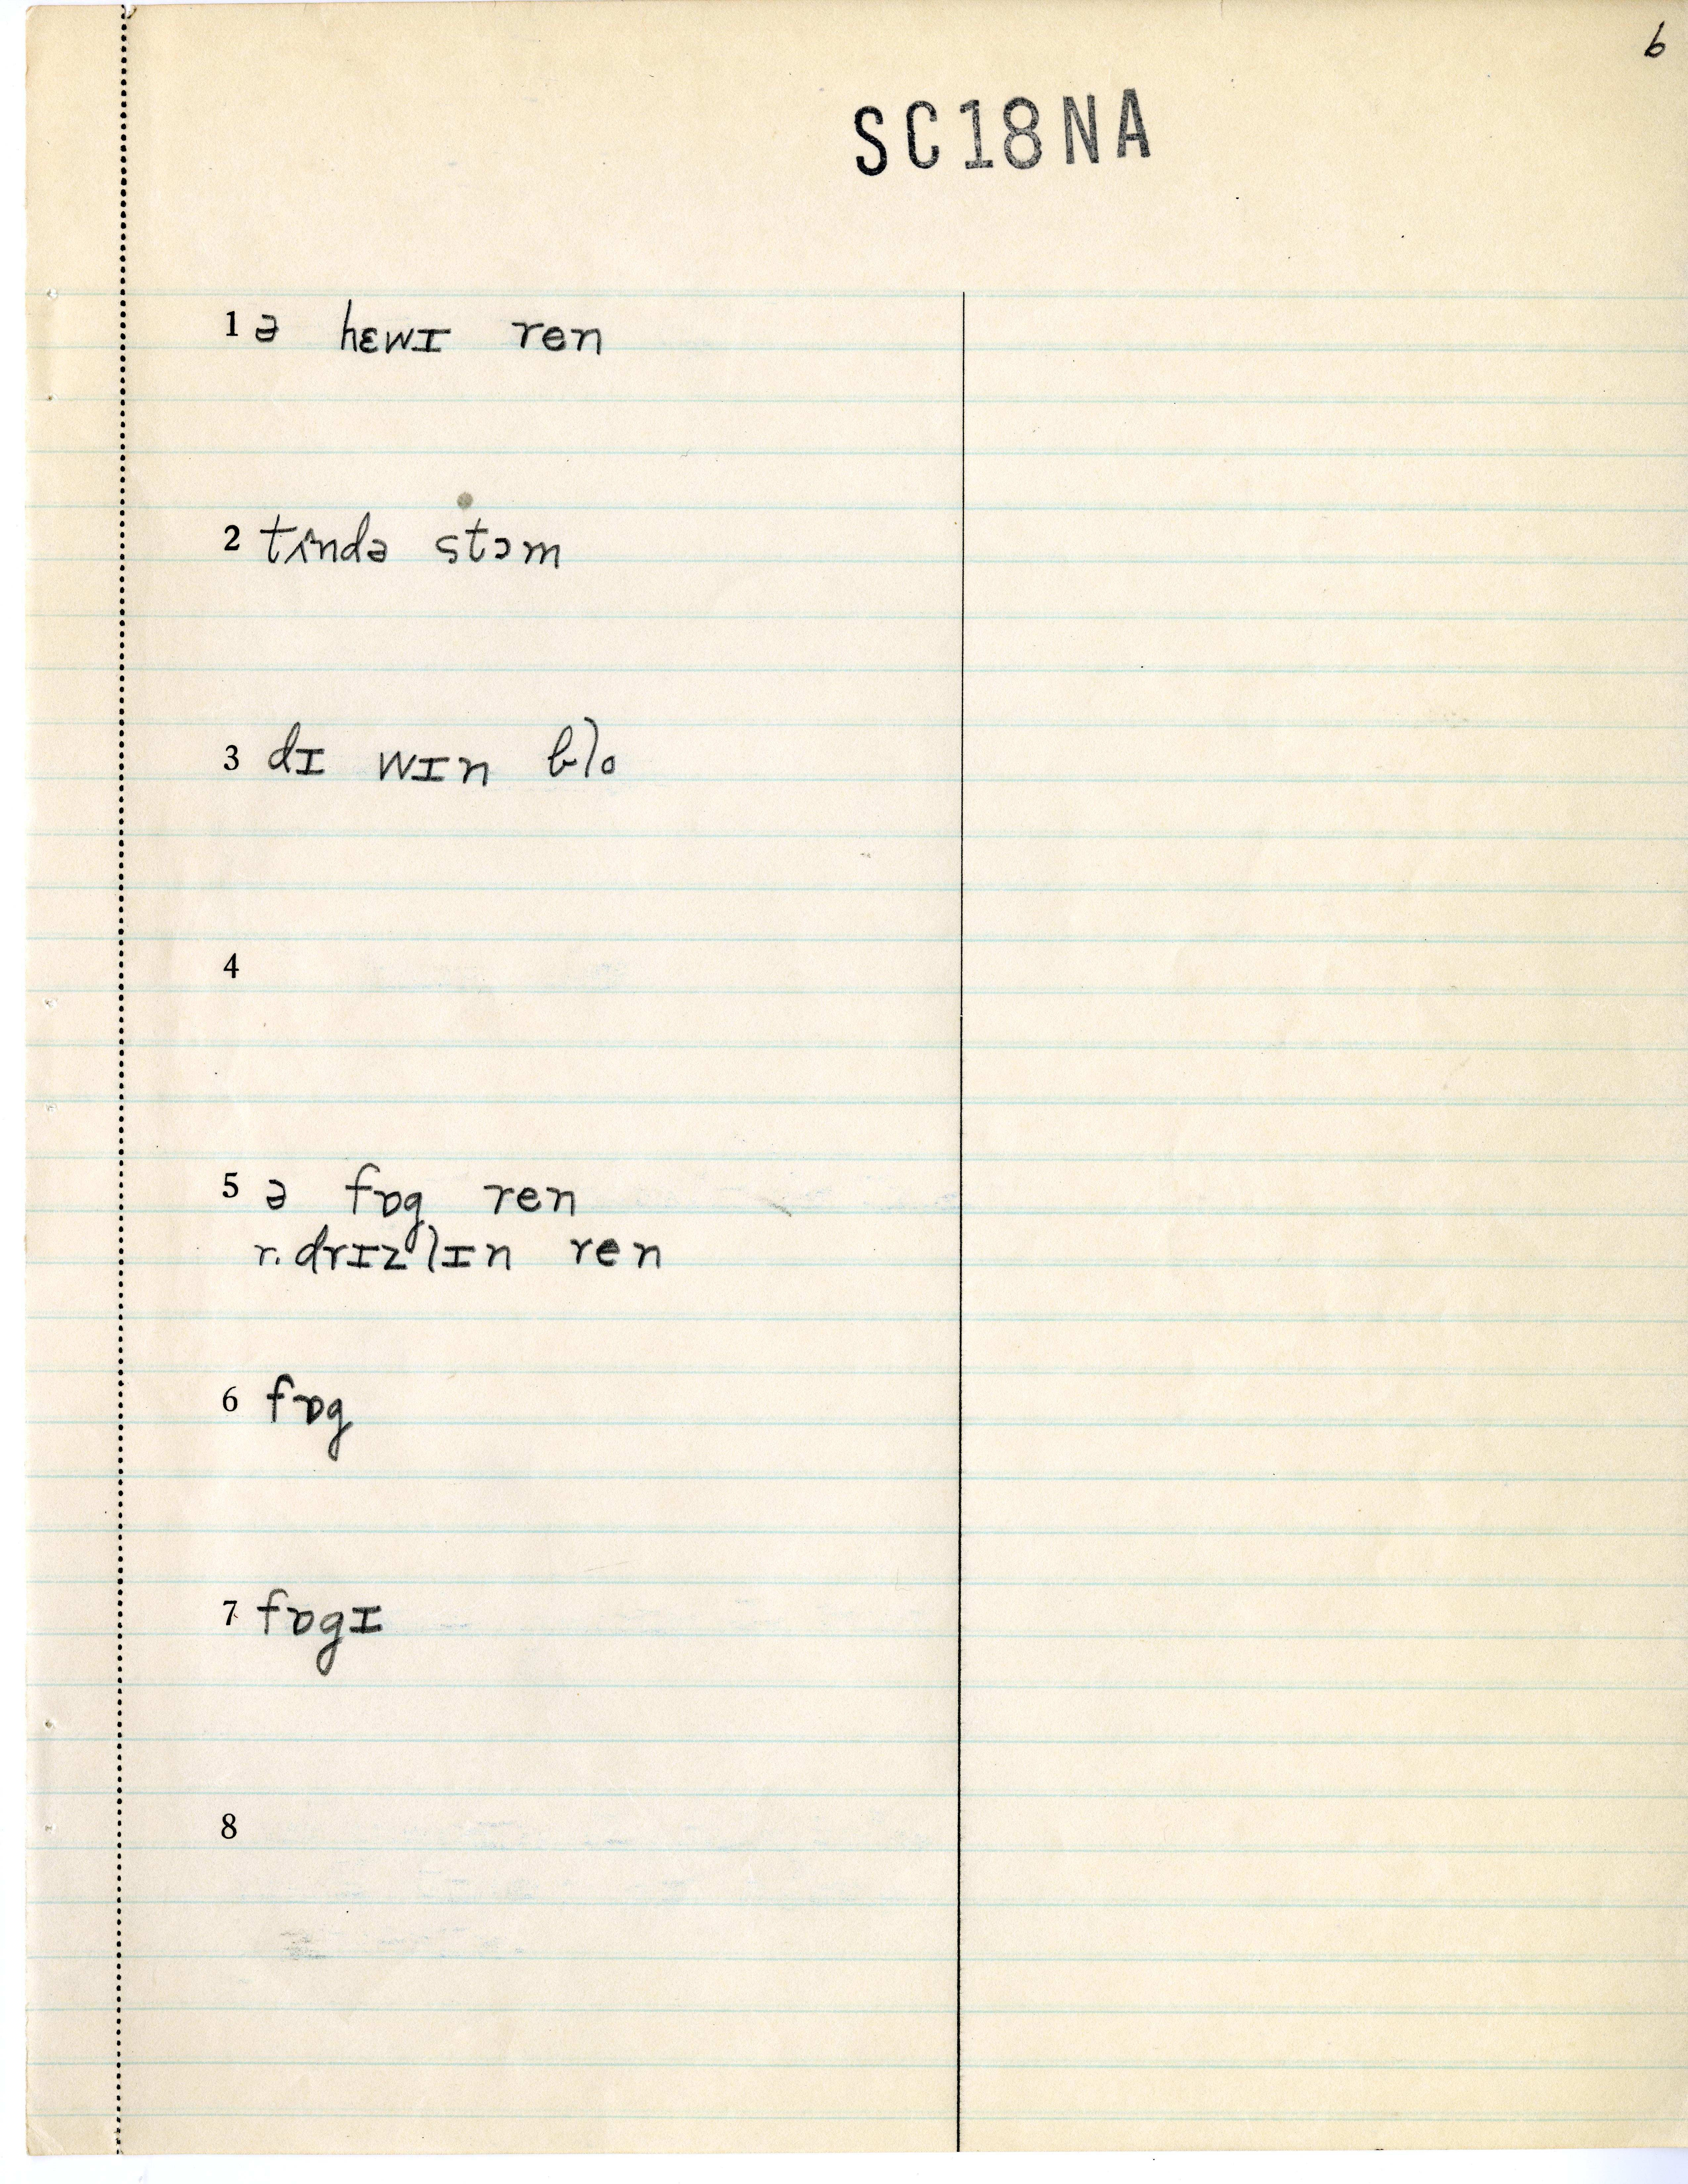 6
SC18NA
1 ə hɛwɪ ren
2 tʌ̂ndə stɔm
3 dɪ wɪn blo
4
5 ə fɒg ren
r. drɪzlɪn ren
6 fɒg
7 fɒgɪ
8